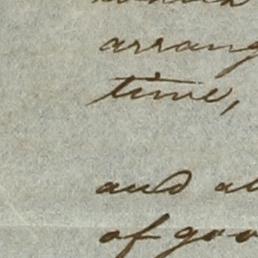 arrang
time,
and al
of goo